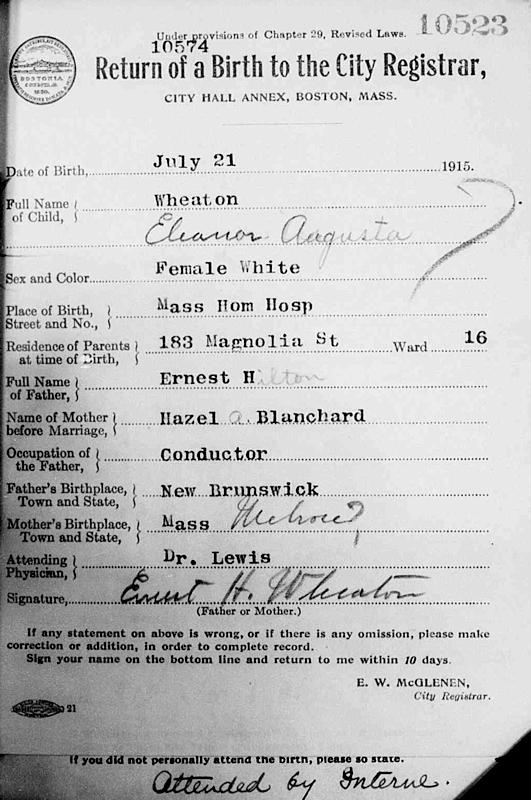 Under provisions of Chapter 29, Revised Laws.
10523
10574
BOSTONIA
CONDITA A.D.
1630.
Return of a Birth to the City Registrar,
CITY HALL ANNEX, BOSTON, MASS.
Date of Birth, July 21 1915.
Full Name of Child, Wheaton
Eleanor Augusta
Sex and Color Female White
Place of Birth, Street and No., Mass Hom Hosp
Residence of Parents at time of Birth, 183 Magnolia St Ward 16
Full Name of Father, Ernest Hilton
Name of Mother before Marriage, Hazel a. Blanchard
Occupation of the Father, Conductor
Father's Birthplace, Town and State, New Brunswick
Mother's Birthplace, Town and State, Mass Melrose
Attending Physician, Dr. Lewis
Signature, Ernest H. Wheaton
(Father or Mother.)
If any statement on above is wrong, or if there is any omission, please make
correction or addition, in order to complete record.
Sign your name on the bottom line and return to me within 10 days.
E. W. McGLENEN,
City Registrar.
21
If you did not personally attend the birth, please so state.
Attended by Interne.